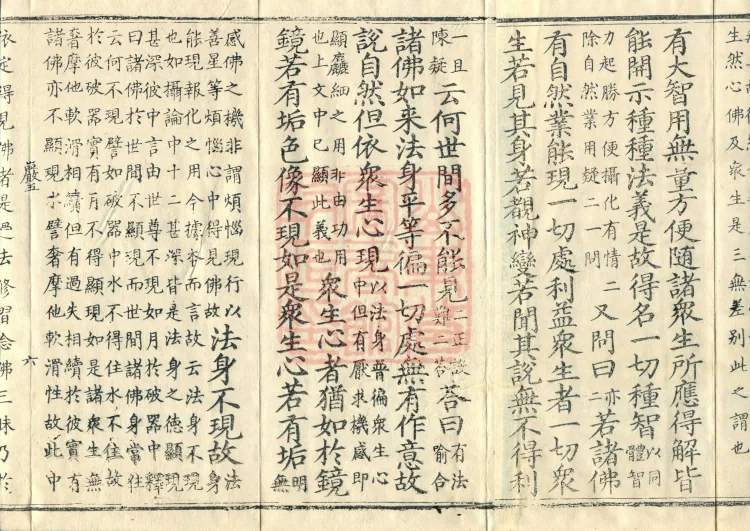 生然心佛及衆生是三無差別此之謂也
有大智用無量方便隨諸衆生所應得解皆
能開示種種法義是故得名一切種智以同體智
力起勝方便攝化有情二除自然業用疑二一問又問曰亦二若諸佛
有自然業能現一切處利益衆生者一切衆
生若見其身若覩神變若聞其說無不得利
一且陳疑云何世間多不能見二正設難二答答曰有法喻合
諸佛如來法身平等徧一切處無有作意故
說自然但依衆生心現以法身普徧衆生心中但有厭求機感即
顯麤細之用非由功用也上文中已顯此義也衆生心者猶如於鏡
鏡若有垢色像不現如是衆生心若有垢明無
感佛之機非謂煩惱現行以善星等煩惱心中得見佛故法身不現故法身
能現報化之用今據本而言故云法身不現
也如攝論中十二甚深皆是法身之德顯現
甚深彼中言由世尊不現如月於破器中釋
曰諸佛於世間不顯現而世間諸佛身常住
云何不現譬如破器中水不得住水不住故
於彼破器實有月不得顯現如是諸衆生無
奢摩他軟滑相續但有過失相續於彼實有
諸佛亦不顯現水譬奢摩他軟滑性故此中
嚴五 六
定得見佛者是過去修習念佛三昧乃於